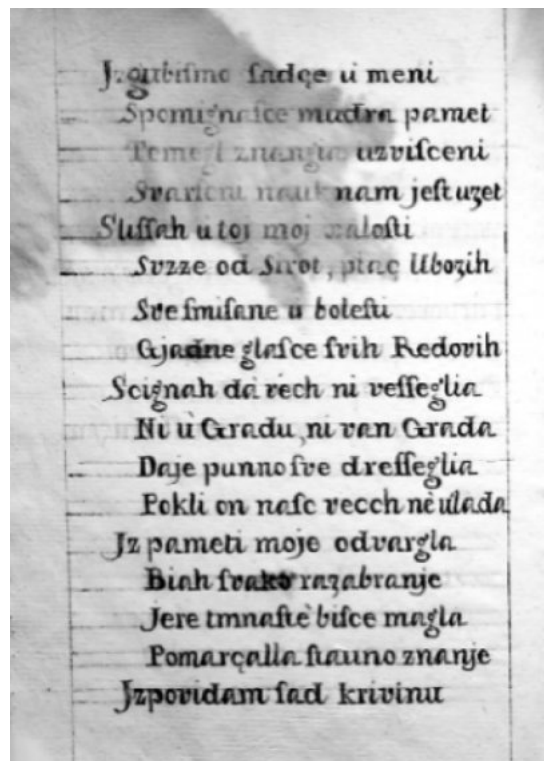 Jzgubismo sadçe u meni
Spomignasce mudra pamet
Temegl znangia uzvisceni
Svarieni nauk nam jest uzet
Slissah u toj moj xalosti
Suzze od Sirot, plaç Ubozih
Sve smisane u bolesti
Gjadne glasce svih Redovih
Scignah da rech ni vesseglia
Ni u Gradu, ni van Grada
Daje punno sve dresseglia
Pokli on nasc vecch nè ulada
Jz pameti moje odvargla
Biah svako razabranje
Jere tmnastè bisce magla
Pomarçalla stauno znanje
Jzpovidam sad krivinu